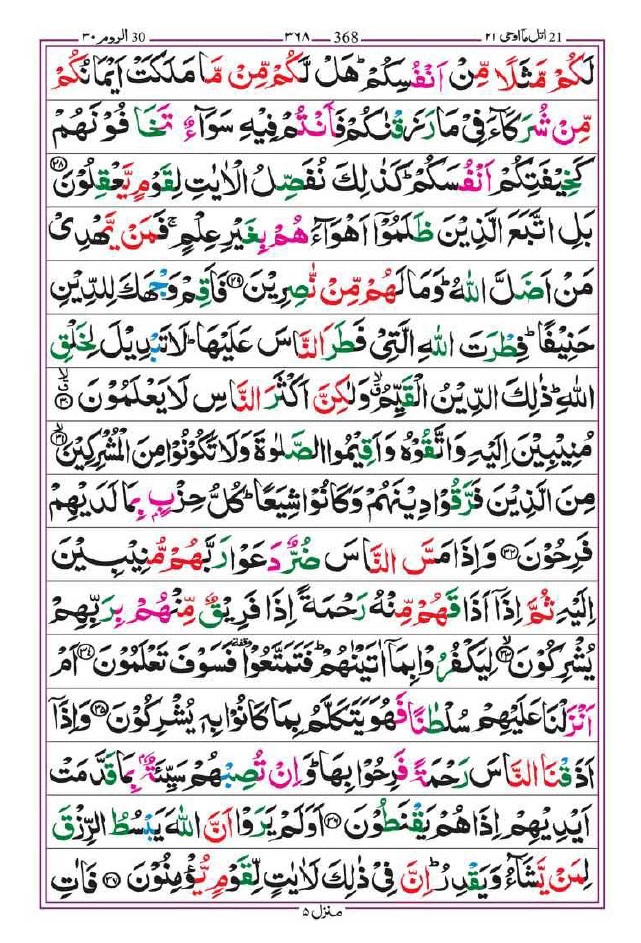 21 اتل ما اوحی ۲۱ 368 ۳۶۸ 30 الروم ۳۰
لَكُمْ مَّثَلًا مِّنْ اَنْفُسِكُمْ ؕ هَلْ لَّكُمْ مِّنْ مَّا مَلَكَتْ اَیْمَانُكُمْ
مِّنْ شُرَكَآءَ فِیْ مَا رَزَقْنٰكُمْ فَاَنْتُمْ فِیْهِ سَوَآءٌ تَخَافُوْنَهُمْ
كَخِیْفَتِكُمْ اَنْفُسَكُمْ ؕ كَذٰلِكَ نُفَصِّلُ الْاٰیٰتِ لِقَوْمٍ یَّعْقِلُوْنَ ﴿۲۸﴾
بَلِ اتَّبَعَ الَّذِیْنَ ظَلَمُوْۤا اَهْوَآءَهُمْ بِغَیْرِ عِلْمٍ ۚ فَمَنْ یَّهْدِیْ
مَنْ اَضَلَّ اللّٰهُ ؕ وَمَا لَهُمْ مِّنْ نّٰصِرِیْنَ ﴿۲۹﴾ فَاَقِمْ وَجْهَكَ لِلدِّیْنِ
حَنِیْفًا ؕ فِطْرَتَ اللّٰهِ الَّتِیْ فَطَرَ النَّاسَ عَلَیْهَا ؕ لَا تَبْدِیْلَ لِخَلْقِ
اللّٰهِ ؕ ذٰلِكَ الدِّیْنُ الْقَیِّمُ ۙ وَلٰكِنَّ اَكْثَرَ النَّاسِ لَا یَعْلَمُوْنَ ﴿۳۰﴾
مُنِیْبِیْنَ اِلَیْهِ وَاتَّقُوْهُ وَاَقِیْمُوا الصَّلٰوةَ وَلَا تَكُوْنُوْا مِنَ الْمُشْرِكِیْنَ ﴿۳۱﴾
مِنَ الَّذِیْنَ فَرَّقُوْا دِیْنَهُمْ وَكَانُوْا شِیَعًا ؕ كُلُّ حِزْبٍۭ بِمَا لَدَیْهِمْ
فَرِحُوْنَ ﴿۳۲﴾ وَاِذَا مَسَّ النَّاسَ ضُرٌّ دَعَوْا رَبَّهُمْ مُّنِیْبِیْنَ
اِلَیْهِ ثُمَّ اِذَاۤ اَذَاقَهُمْ مِّنْهُ رَحْمَةً اِذَا فَرِیْقٌ مِّنْهُمْ بِرَبِّهِمْ
یُشْرِكُوْنَ ﴿۳۳﴾ لِیَكْفُرُوْا بِمَاۤ اٰتَیْنٰهُمْ ؕ فَتَمَتَّعُوْا فَسَوْفَ تَعْلَمُوْنَ ﴿۳۴﴾ اَمْ
اَنْزَلْنَا عَلَیْهِمْ سُلْطٰنًا فَهُوَ یَتَكَلَّمُ بِمَا كَانُوْا بِهٖ یُشْرِكُوْنَ ﴿۳۵﴾ وَاِذَاۤ
اَذَقْنَا النَّاسَ رَحْمَةً فَرِحُوْا بِهَا ؕ وَاِنْ تُصِبْهُمْ سَیِّئَةٌۢ بِمَا قَدَّمَتْ
اَیْدِیْهِمْ اِذَا هُمْ یَقْنَطُوْنَ ﴿۳۶﴾ اَوَلَمْ یَرَوْا اَنَّ اللّٰهَ یَبْسُطُ الرِّزْقَ
لِمَنْ یَّشَآءُ وَیَقْدِرُ ؕ اِنَّ فِیْ ذٰلِكَ لَاٰیٰتٍ لِّقَوْمٍ یُّؤْمِنُوْنَ ﴿۳۷﴾ فَاٰتِ
منزل ۵